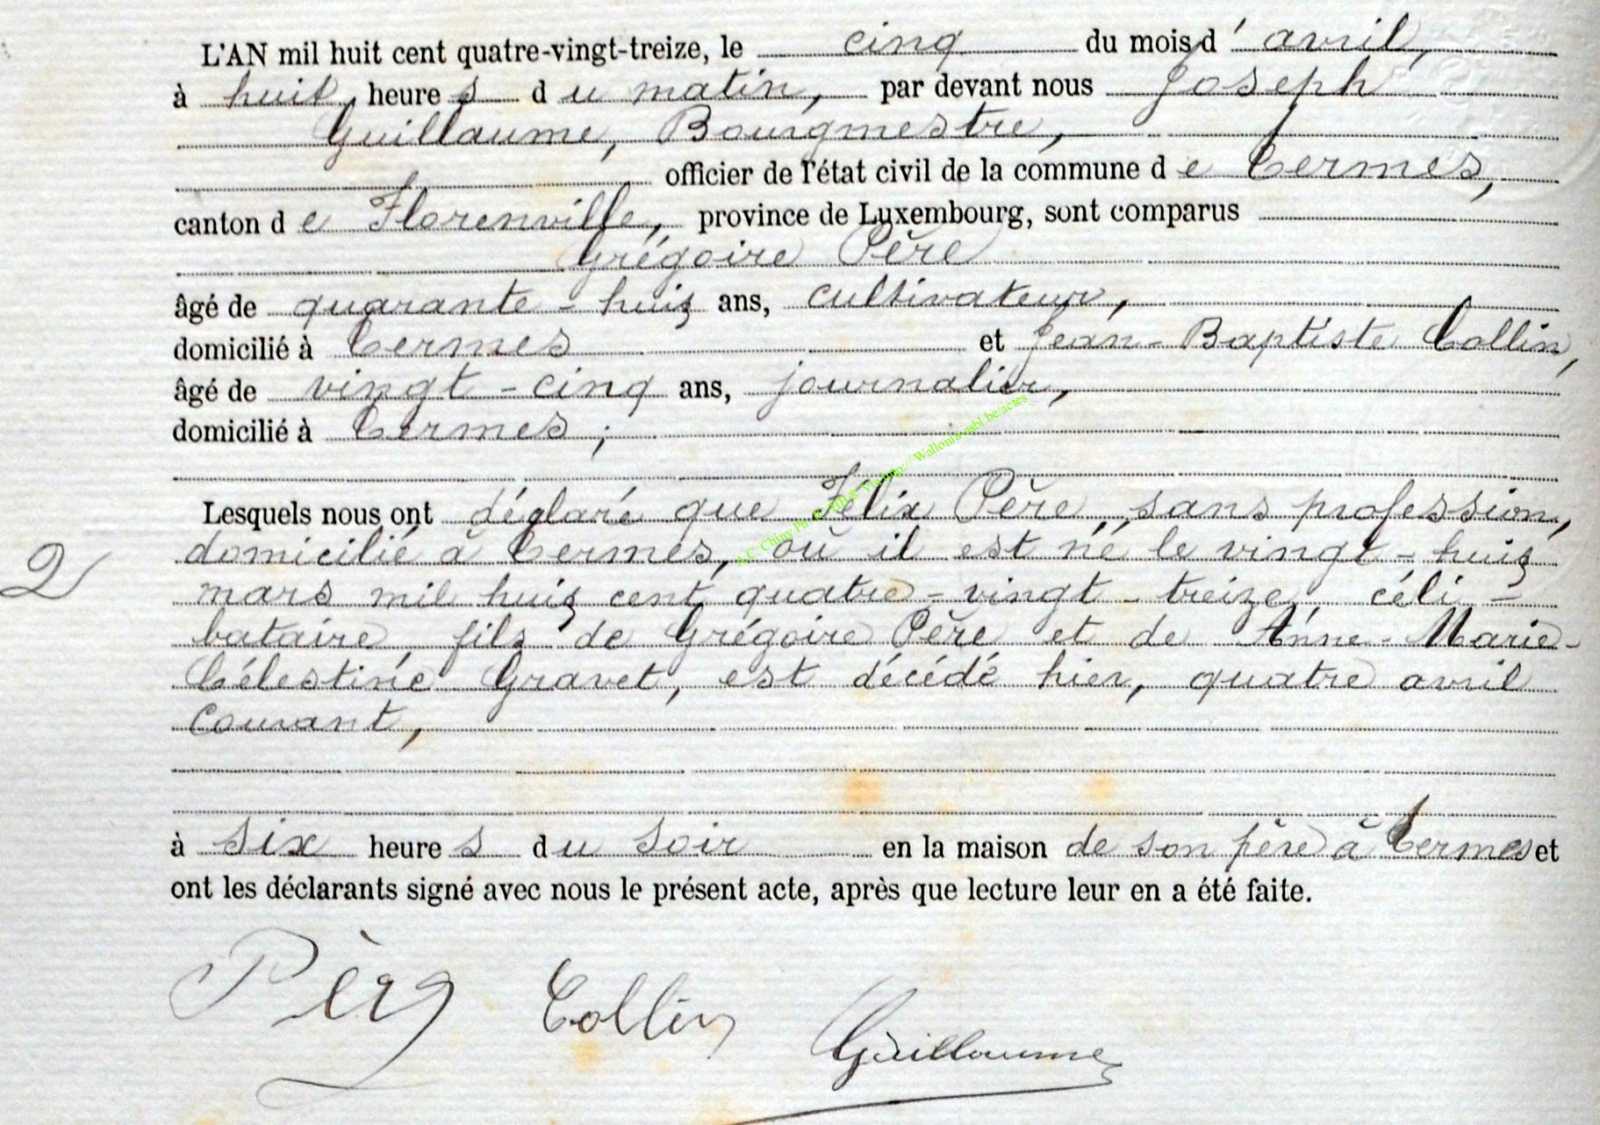 L'AN mil huit cent quatre-vingt-treize, le cinq du mois d'avril,
à huit heures du matin, par devant nous Joseph
Guillaume, Bourgmestre,
officier de l'état civil de la commune de Termes,
canton de Florenville, province de Luxembourg, sont comparus
Grégoire Père
âgé de quarante-huit ans, cultivateur,
domicilié à Termes et Jean-Baptiste Collin,
âgé de vingt-cinq ans, journalier,
domicilié à Termes ;
Lesquels nous ont déclaré que Félix Père, sans profession,
domicilié à Termes, où il est né le vingt-huit
2 mars mil huit cent quatre-vingt-treize, céli-
bataire, fils de Grégoire Père et de Anne-Marie-
Célestine Gravet, est décédé hier, quatre avril
courant,
à six heures du soir en la maison de son père à Termes et
ont les déclarants signé avec nous le présent acte, après que lecture leur en a été faite.
Père Collin Guillaume